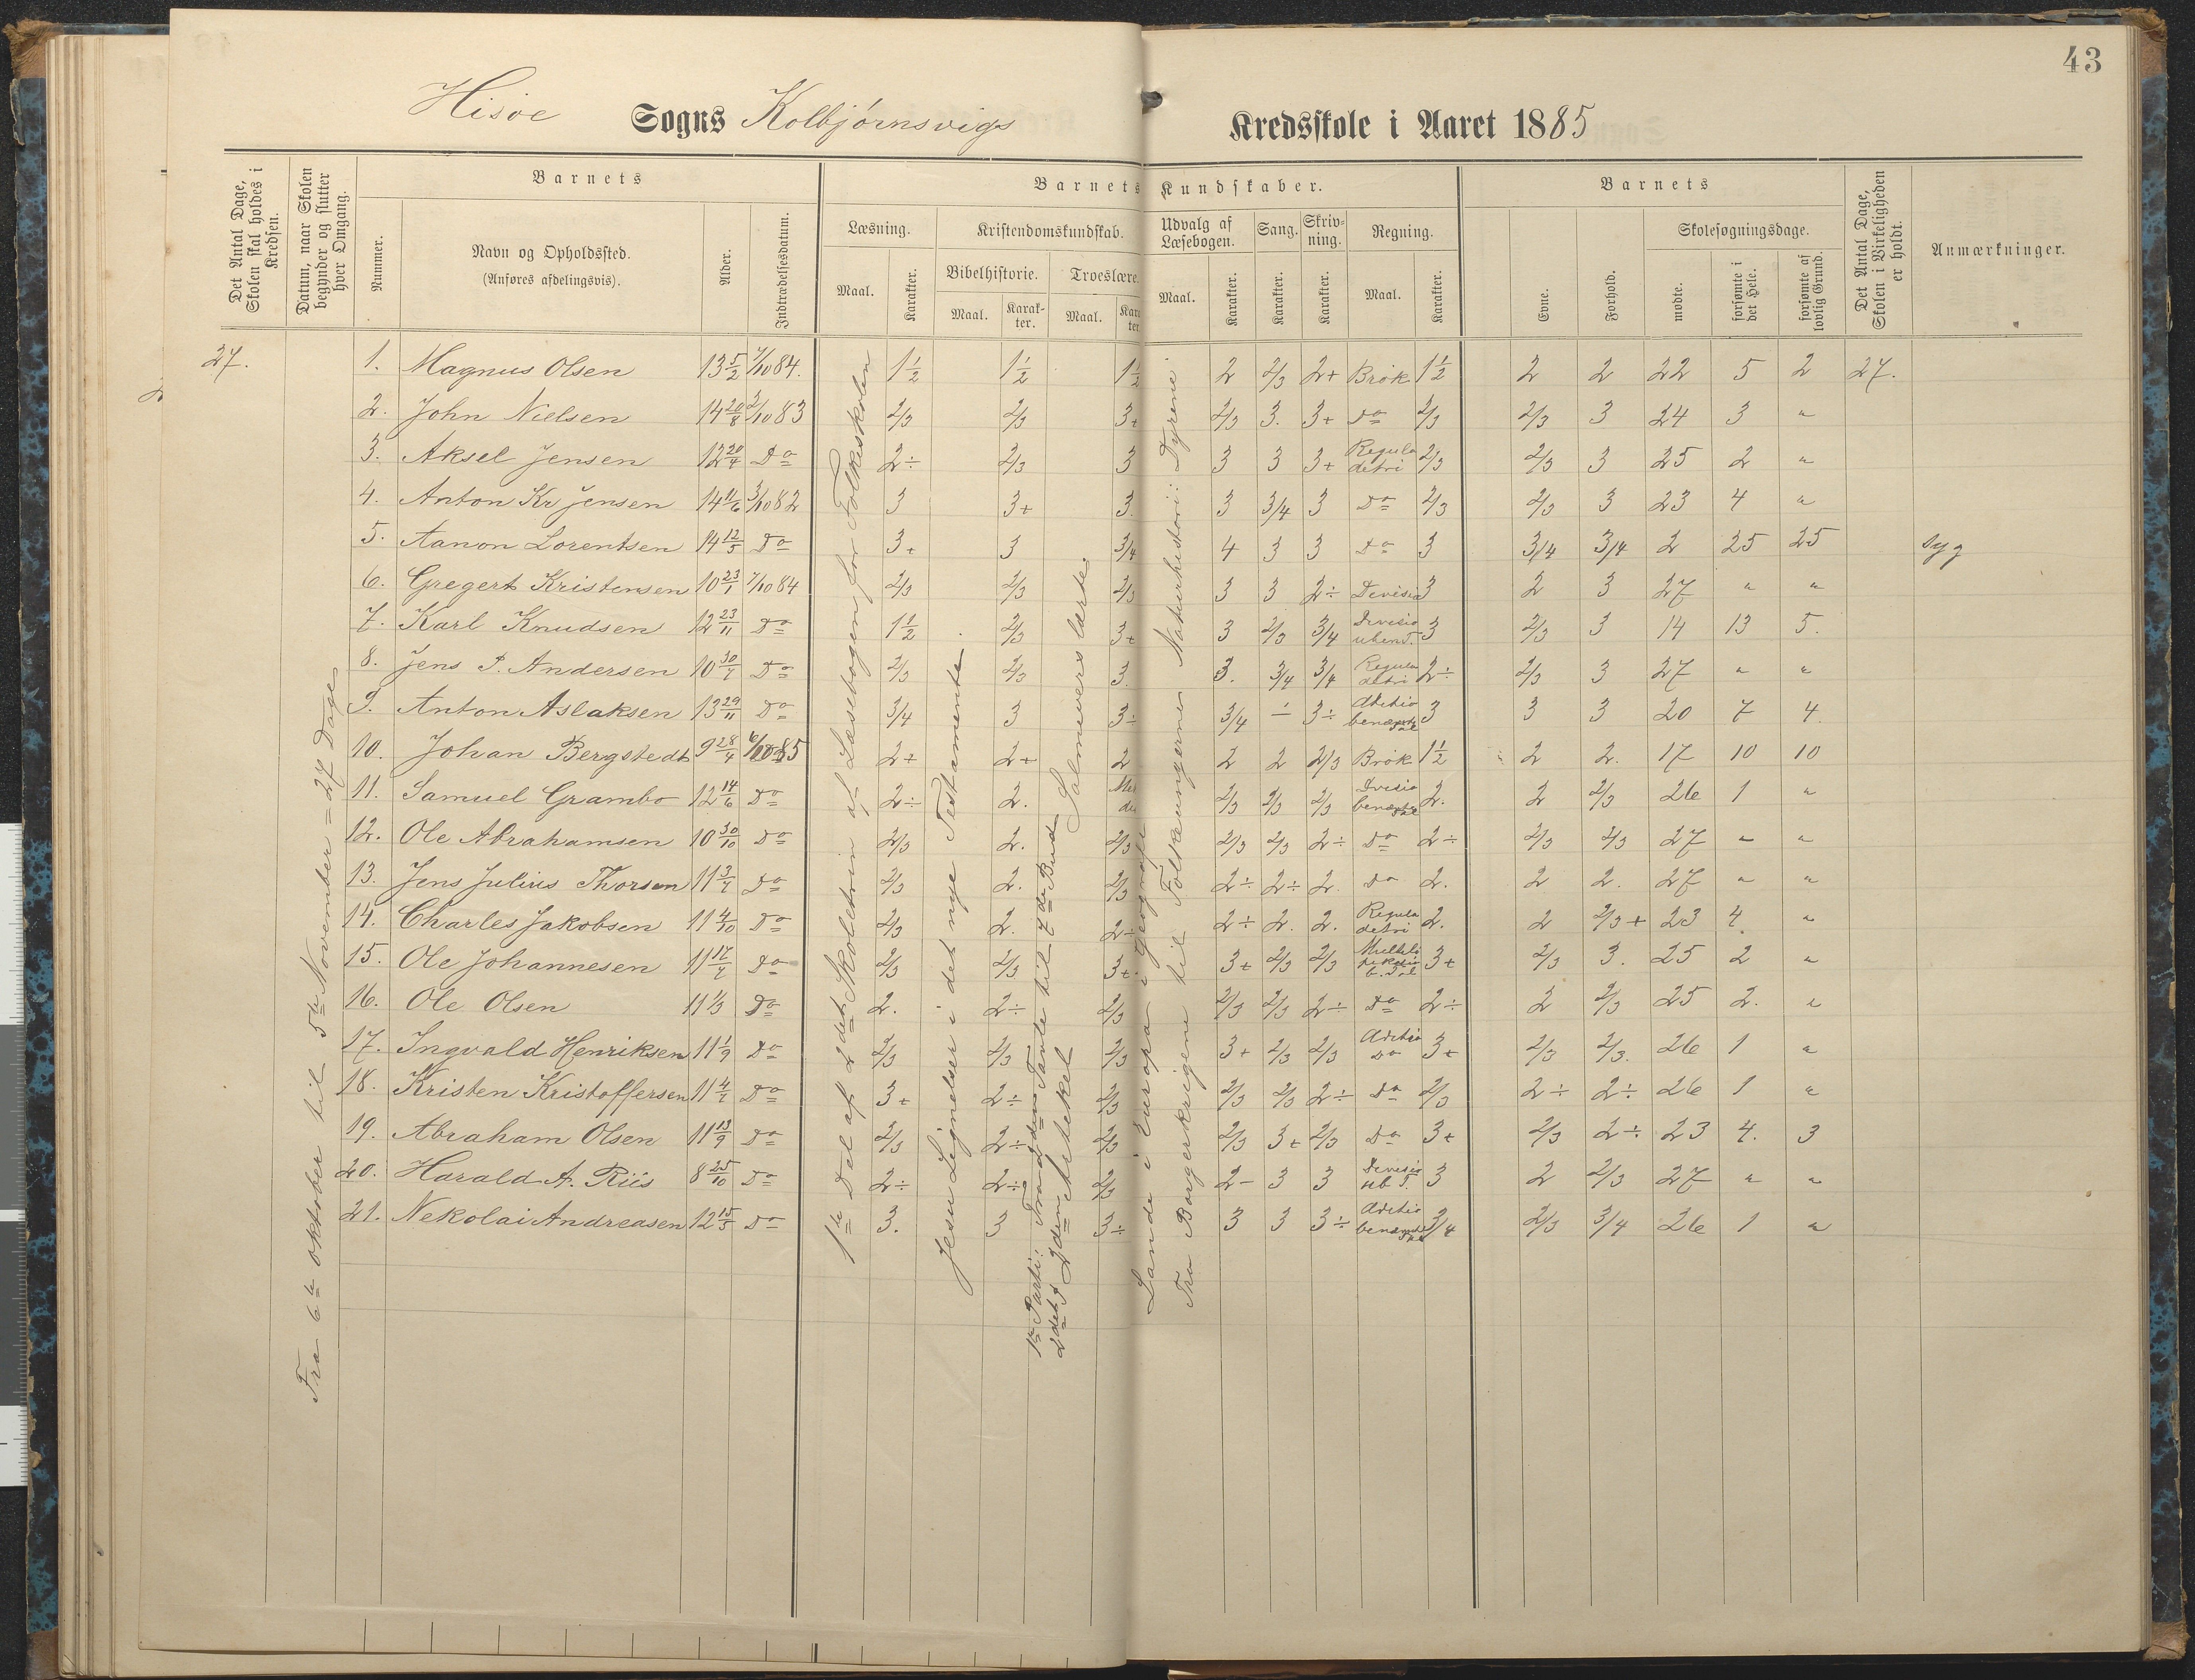 43
Hisöe Sogns Kolbjörnsvigs Kredsskole i Aaret 1885
Det Antal Dage, Skolen skal holdes i Kredsen.
Datum, naar Skolen begynder og slutter hver Omgang.
Barnets
Nummer.
Navn og Opholdssted.
(Anføres afdelingsvis).
Alder.
Indtrædelsesdatum.
Barnets Kundskaber.
Læsning.
Maal. Karakter.
Kristendomskundskab.
Bibelhistorie. Troeslære.
Maal. Karakter. Maal.
Udvalg af Læsebogen.
Maal. Karakter.
Sang.
Karakter.
Skrivning.
Karakter.
Regning.
Maal. Karakter.
Barnets
Evne.
Forhold.
Skolesøgningsdage.
mødte.
forsømte i det Hele.
forsømte af lovlig Grund.
Det Antal Dage, Skolen i Virkeligheden er holdt.
Anmærkninger.
27.
Fra 6te oktober til 5te November = 27 Dage
1. Magnus Olsen 13 5/2 7/10 84. 1½ 1½ 1½ 2 2/3 2+ Brök 1½ 2 2 22 5 2 27.
2. John Nielsen 14 20/8 2/10 83 2/3 2/3 3+ 2/3 3. 3+ Do 2/3 2/3 3 24 3 "
3. Aksel Jensen 12 20/4 Do 2÷ 2/3 3 3 3 3+ Regula detri 2/3 2/3 3 25 2 "
4. Anton Kr Jensen 14 11/6 3/10 82 3 3+ 3. 3 3/4 3 Do 2/3 2/3 3 23 4 "
5. Aanon Lorentsen 14 12/5 Do 3+ 3 3/4 4 3 3 Do 3 3/4 3/4 2 25 25 syg
6. Gregert Kristensen 10 23/1 7/10 84 2/3 2/3 2/3 3 3 2÷ Devisio 3 2 3 27 " "
7. Karl Knudsen 12 23/11 Do 1½ 2/3 3+ 3 2/3 3/4 Devisio uben T. 3 2/3 3 14 13 5.
8. Jens P. Andersen 10 30/7 Do 2/3 2/3 3. 3. 3/4 3/4 Regula detri 2÷ 2/3 3 27 " "
9. Anton Aslaksen 13 29/11 Do 3/4 3 3÷ 3/4 ÷ 3÷ Aditio benævnte Tal 3 3 3 20 7 4.
10. Johan Bergstedt 9 28/4 6/10 85 2+ 2+ 2 2 2 2/3 Brök 1½ 2 2. 17 10 10
11. Samuel Grambo 12 14/6 Do 2÷ 2. 2/3 2/3 2/3 Dvisio benævnte Tal 2. 2 2/3 26 1 "
12. Ole Abrahamsen 10 30/10 Do 2/3 2. 2/3 2/3 2/3 2÷ Do 2÷ 2/3 2/3 27 " "
13. Jens Julius Thorsen 11 3/7 Do 2/3 2. 2/3 2÷ 2÷ 2. Do 2. 2 2. 27 " "
14. Charles Jakobsen 11 4/10 Do 2/3 2. 2÷ 2÷ 2. 2. Regula detri 2. 2 2/3+ 23 4. "
15. Ole Johannesen 11 17/7 Do 2/3 2/3 3+ 3+ 2/3 2/3 3+ 2/3 3. 25 2 "
16. Ole Olsen 11 1/3 Do 2. 2÷ 2/3 2/3 2/3 2÷ Do 2÷ 2 2/3 25 2. "
17. Ingvald Henriksen 11 1/9 Do 2/3 2/3 2/3 3+ 2/3 2/3 Aditio Do 3+ 2/3 2/3. 26 1 "
18. Kristen Kristoffersen 11 4/7 Do 3+ 2÷ 2/3 2/3 2/3 2÷ Do 2/3 2÷ 2÷ 26 1 "
19. Abraham Olsen 11 13/9 Do 2/3 2÷ 2/3 2/3 3+ 2/3 Do 3+ 2/3 2÷ 23 4. 3
20. Harald A. Riis 8 25/10 Do 2÷ 2÷ 2/3 2- 3 3 Devisio ub T. 3 2 2/3 27 " "
21. Nekolai Andreasen 12 15/5 Do 3. 3 3÷ 3 3 3÷ Aditio benævnte Tal 3/4 2/3 3/4 26 1 "
1te Del af 2det Skoletrin af Læsebogen for Folkeskolen
Jesu Lignelser i det nye Testamente
1te Parti: Fra den Tante til 7de Bud
2det P. 2den Artikel
Salmevers lærtes
Lande i Europa i Geografi
Fra Borgerkrigene til Folkeungerne Naturhistori: Dyrene